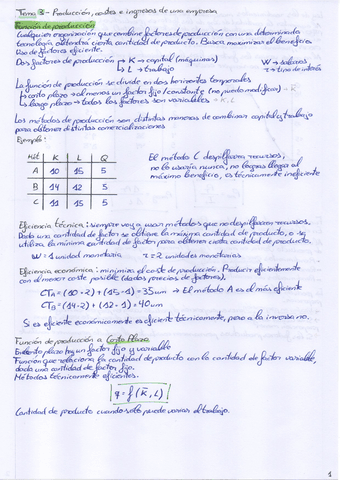 Tema 3 - Producción, costes e ingresos de una empresa
Función de producción
Cualquier organización que combine factores de producción con una determinada
tecnología obtendrá cierta cantidad de producto. Busca maximizar el beneficio.
Uso de factores eficiente.
Dos factores de producción → K → capital (máquinas) W → salarios
→ L → trabajo r → tipo de interés
La función de producción se divide en dos horizontes temporales
→ corto plazo → al menos un factor fijo/constante (no puedo modificar) - K̄
→ largo plazo → todos los factores son variables - K, L
Los métodos de producción son distintas maneras de combinar capital y trabajo
para obtener distintas comercializaciones
Ejemplo:
Mét K L Q
A 10 15 5
B 14 12 5
C 11 15 5
El método C despilfarra recursos,
no lo usaría nunca, no logras llegar al
máximo beneficio, es técnicamente ineficiente
Eficiencia técnica: siempre voy a usar métodos que no despilfarren recursos.
Dada una cantidad de factor se obtiene la máxima cantidad de producto, o se
utiliza la mínima cantidad de factor para obtener cierta cantidad de producto.
W = 1 unidad monetaria r = 2 unidades monetarias
Eficiencia económica: minimiza el coste de producción. Producir eficientemente
con el menor coste posible (dados precios de factores).
CTA = (10·2) + (15·1) = 35um → El método A es el más eficiente
CTB = (14·2) + (12·1) = 40um
Si es eficiente económicamente es eficiente técnicamente, pero a la inversa no.
Función de producción a Corto Plazo
En corto plazo hay un factor fijo y otro variable
Función que relaciona la cantidad de producto con la cantidad de factor variable,
dada una cantidad de factor fijo.
Métodos técnicamente eficientes.
q = f(K̄, L)
Cantidad de producto cuando solo puede variar el trabajo.
1